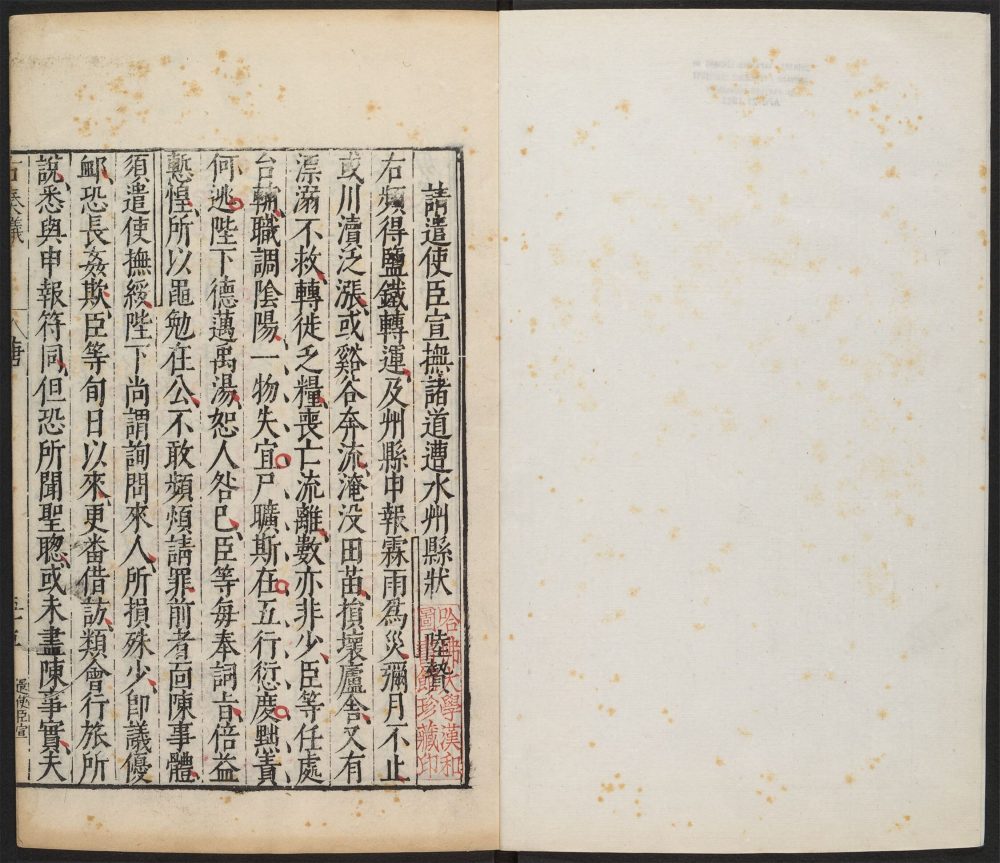 請遣使臣宣撫諸道遭水州縣狀 陸贄
哈佛大學漢和
圖書館珍藏印
右頻得鹽鐵轉運及州縣申報霖雨爲災彌月不止
或川瀆泛漲或谿谷奔流淹没田苗損壞廬舍又有
漂溺不救轉徙乏糧喪亡流離數亦非少臣等任處
台輔職調陰陽一物失宜尸曠斯在五行愆度黜責
何逃陛下德邁禹湯恕人咎己臣等每奉詞旨倍益
慙惶所以黽勉在公不敢頻煩請罪前者面陳事體
須遣使撫綏陛下尚謂詢問來人所損殊少即議優
䘏恐長姦欺臣等旬日以來更番借訪類會行旅所
說悉與申報符同但恐所聞聖聰或未盡陳事實夫
古奏議 唐